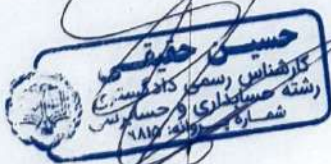 حسین حقیقی
کارشناس رسمی دادگستری
رشته حسابداری و حسابرسی
شماره پروانه: ۹۸۱۵